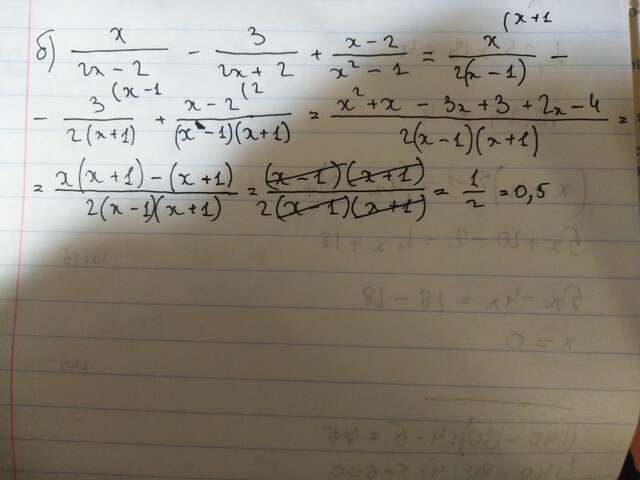 б) x/(2x - 2) - 3/(2x + 2) + (x - 2)/(x² - 1) = x^(x + 1/(2(x - 1)) -
- 3^(x - 1/(2(x + 1)) + x - 2^(2/((x - 1)(x + 1)) = (x² + x - 3x + 3 + 2x - 4)/(2(x - 1)(x + 1)) =
= (x(x + 1) - (x + 1))/(2(x - 1)(x + 1)) = ((x - 1)(x + 1))/(2(x - 1)(x + 1)) = 1/2 = 0,5